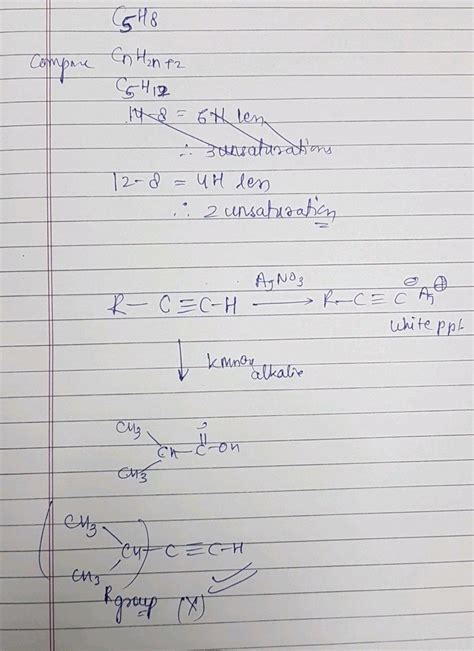 C5H8
Compare CnH2n+2
C5H12
14-8 = 6H len
∴ 3 unsaturations
12-8 = 4H len
∴ 2 unsaturation
R-C≡C-H AgNO3 → R-C≡C⊖ Ag⊕
white ppt
↓ KMnO4
alkalie
CH3 O
CH-C-OH
CH3
CH3
CH-C≡C-H
CH3
R group (X)